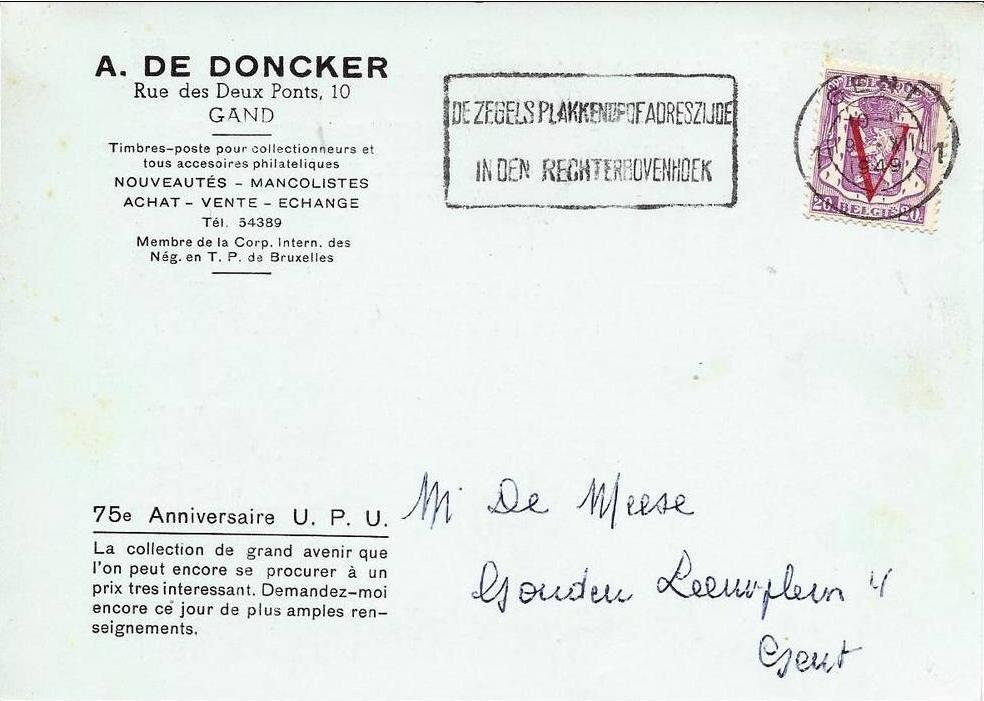 A. DE DONCKER
Rue des Deux Ponts, 10
GAND
Timbres-poste pour collectionneurs et
tous accesoires philateliques
NOUVEAUTÉS - MANCOLISTES
ACHAT - VENTE - ECHANGE
Tél. 54389
Membre de la Corp. Intern. des
Nég. en T. P. de Bruxelles
DE ZEGELS PLAKKEN OP OF ADRESZIJDE
IN DEN RECHTERBOVENHOEK
GENT
1949
1
V
20c BELGIË 20c
75e Anniversaire U. P. U.
La collection de grand avenir que
l'on peut encore se procurer à un
prix tres interessant. Demandez-moi
encore ce jour de plus amples ren-
seignements.
Mr De Meese
Gouden Leeuwplein 4
Gent